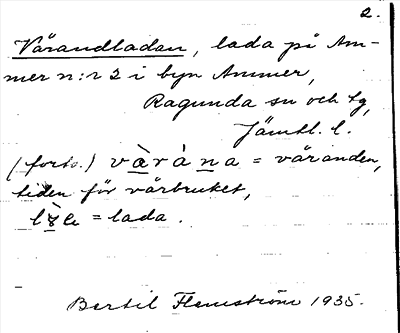 2.
Våran​dladan, lada på Am-
mer n:r 2 i byn Ammer,
Ragunda sn och tg,
Jämtl. l.
(forts.) v​àràna = våranden,
tiden för vårbruket,
= lada.
Bertil Flemström 1935.